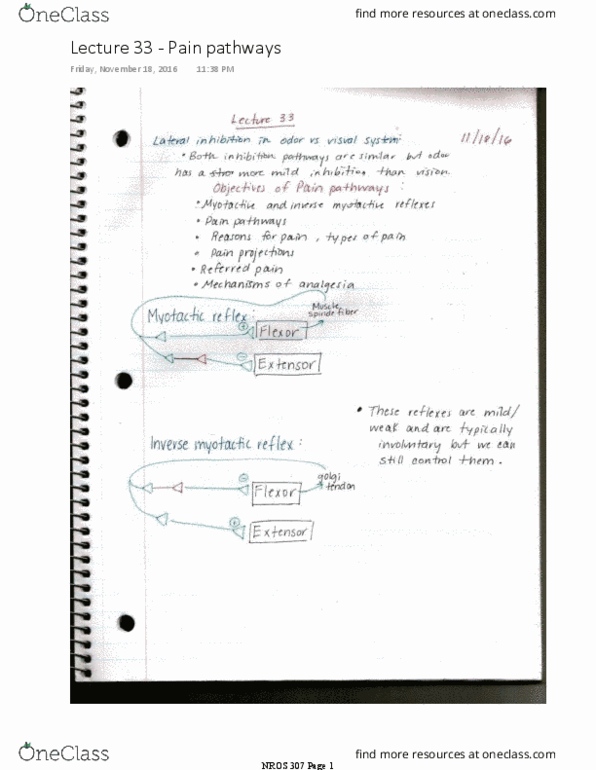 OneClass
find more resources at oneclass.com
Lecture 33 - Pain pathways
Friday, November 18, 2016 11:38 PM
Lecture 33
11/18/16
Lateral inhibition in odor vs visual system:
• Both inhibition pathways are similar but odor
has a more mild inhibition than vision.
Objectives of Pain pathways:
• Myotactive and inverse myotactive reflexes
• Pain pathways
• Reasons for pain, types of pain
• Pain projections
• Referred pain
• Mechanisms of analgesia
Myotactic reflex:
Muscle
spindle fiber
+
Flexor
−
Extensor
• These reflexes are mild/
weak and are typically
involuntary but we can
still control them.
Inverse myotactic reflex:
golgi
tendon
−
Flexor
+
Extensor
OneClass
find more resources at oneclass.com
NROS 307 Page 1